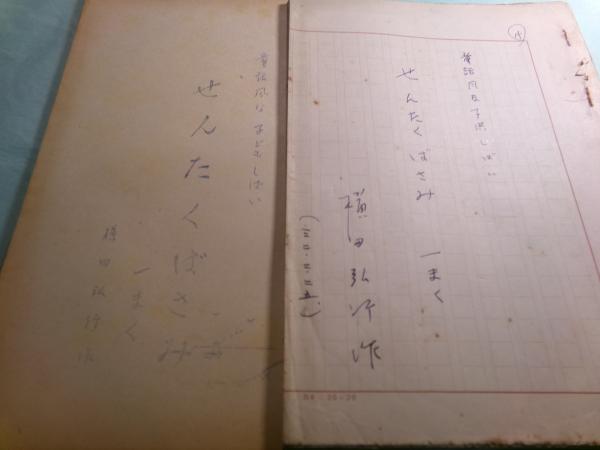 童話風な子供しばい
せんたくばさみ 一まく
横田弘行作
童話風な子どもしばい
せんたくばさみ
一まく
横田弘行作